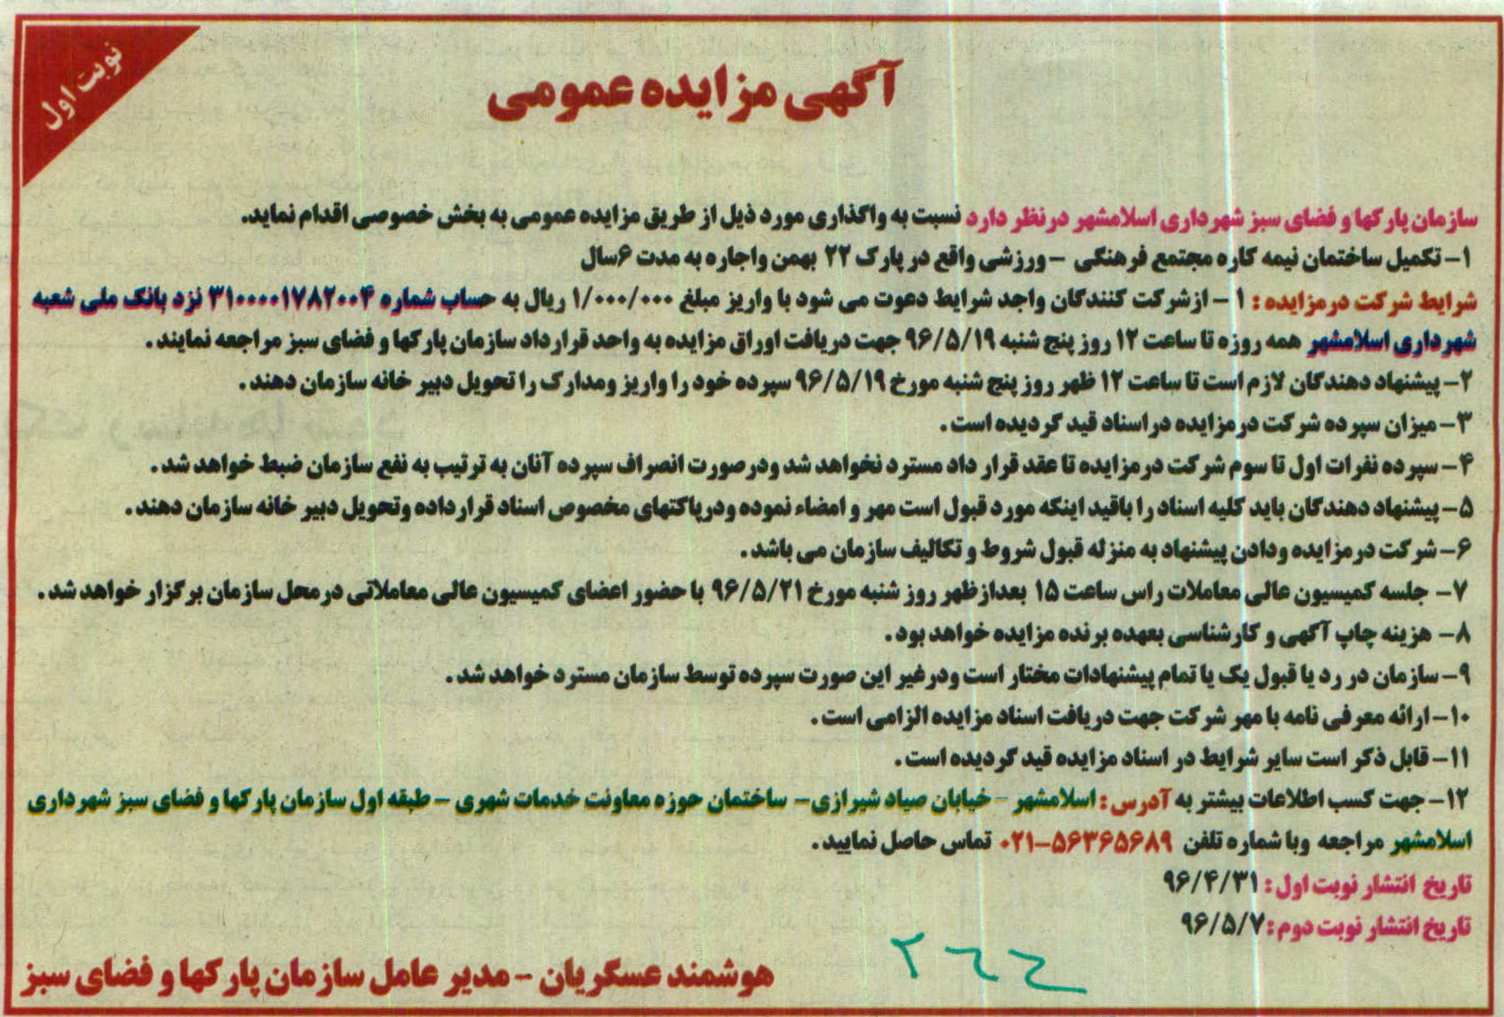 نوبت اول
آگهی مزایده عمومی
سازمان پارکها و فضای سبز شهرداری اسلامشهر درنظر دارد نسبت به واگذاری مورد ذیل از طریق مزایده عمومی به بخش خصوصی اقدام نماید.
۱- تکمیل ساختمان نیمه کاره مجتمع فرهنگی - ورزشی واقع در پارک ۲۲ بهمن واجاره به مدت ۶سال
شرایط شرکت درمزایده : ۱ - ازشرکت کنندگان واجد شرایط دعوت می شود با واریز مبلغ ۱/۰۰۰/۰۰۰ ریال به حساب شماره ۳۱۰۰۰۰۱۷۸۲۰۰۴ نزد بانک ملی شعبه
شهرداری اسلامشهر همه روزه تا ساعت ۱۲ روز پنج شنبه ۹۶/۵/۱۹ جهت دریافت اوراق مزایده به واحد قرارداد سازمان پارکها و فضای سبز مراجعه نمایند .
۲- پیشنهاد دهندگان لازم است تا ساعت ۱۲ ظهر روز پنج شنبه مورخ ۹۶/۵/۱۹ سپرده خود را واریز ومدارک را تحویل دبیر خانه سازمان دهند .
۳- میزان سپرده شرکت درمزایده دراسناد قید گردیده است .
۴- سپرده نفرات اول تا سوم شرکت درمزایده تا عقد قرار داد مسترد نخواهد شد ودرصورت انصراف سپرده آنان به ترتیب به نفع سازمان ضبط خواهد شد .
۵- پیشنهاد دهندگان باید کلیه اسناد را باقید اینکه مورد قبول است مهر و امضاء نموده ودرپاکتهای مخصوص اسناد قرارداده وتحویل دبیر خانه سازمان دهند .
۶- شرکت درمزایده ودادن پیشنهاد به منزله قبول شروط و تکالیف سازمان می باشد .
۷- جلسه کمیسیون عالی معاملات راس ساعت ۱۵ بعدازظهر روز شنبه مورخ ۹۶/۵/۲۱ با حضور اعضای کمیسیون عالی معاملاتی درمحل سازمان برگزار خواهد شد .
۸- هزینه چاپ آگهی و کارشناسی بعهده برنده مزایده خواهد بود .
۹- سازمان در رد یا قبول یک یا تمام پیشنهادات مختار است ودرغیر این صورت سپرده توسط سازمان مسترد خواهد شد .
۱۰- ارائه معرفی نامه با مهر شرکت جهت دریافت اسناد مزایده الزامی است .
۱۱- قابل ذکر است سایر شرایط در اسناد مزایده قید گردیده است .
۱۲- جهت کسب اطلاعات بیشتر به آدرس : اسلامشهر - خیابان صیاد شیرازی- ساختمان حوزه معاونت خدمات شهری - طبقه اول سازمان پارکها و فضای سبز شهرداری
اسلامشهر مراجعه وبا شماره تلفن ۰۲۱-۵۶۳۶۵۶۸۹ تماس حاصل نمایید .
تاریخ انتشار نوبت اول : ۹۶/۴/۳۱
تاریخ انتشار نوبت دوم : ۹۶/۵/۷
هوشمند عسگریان - مدیر عامل سازمان پارکها و فضای سبز